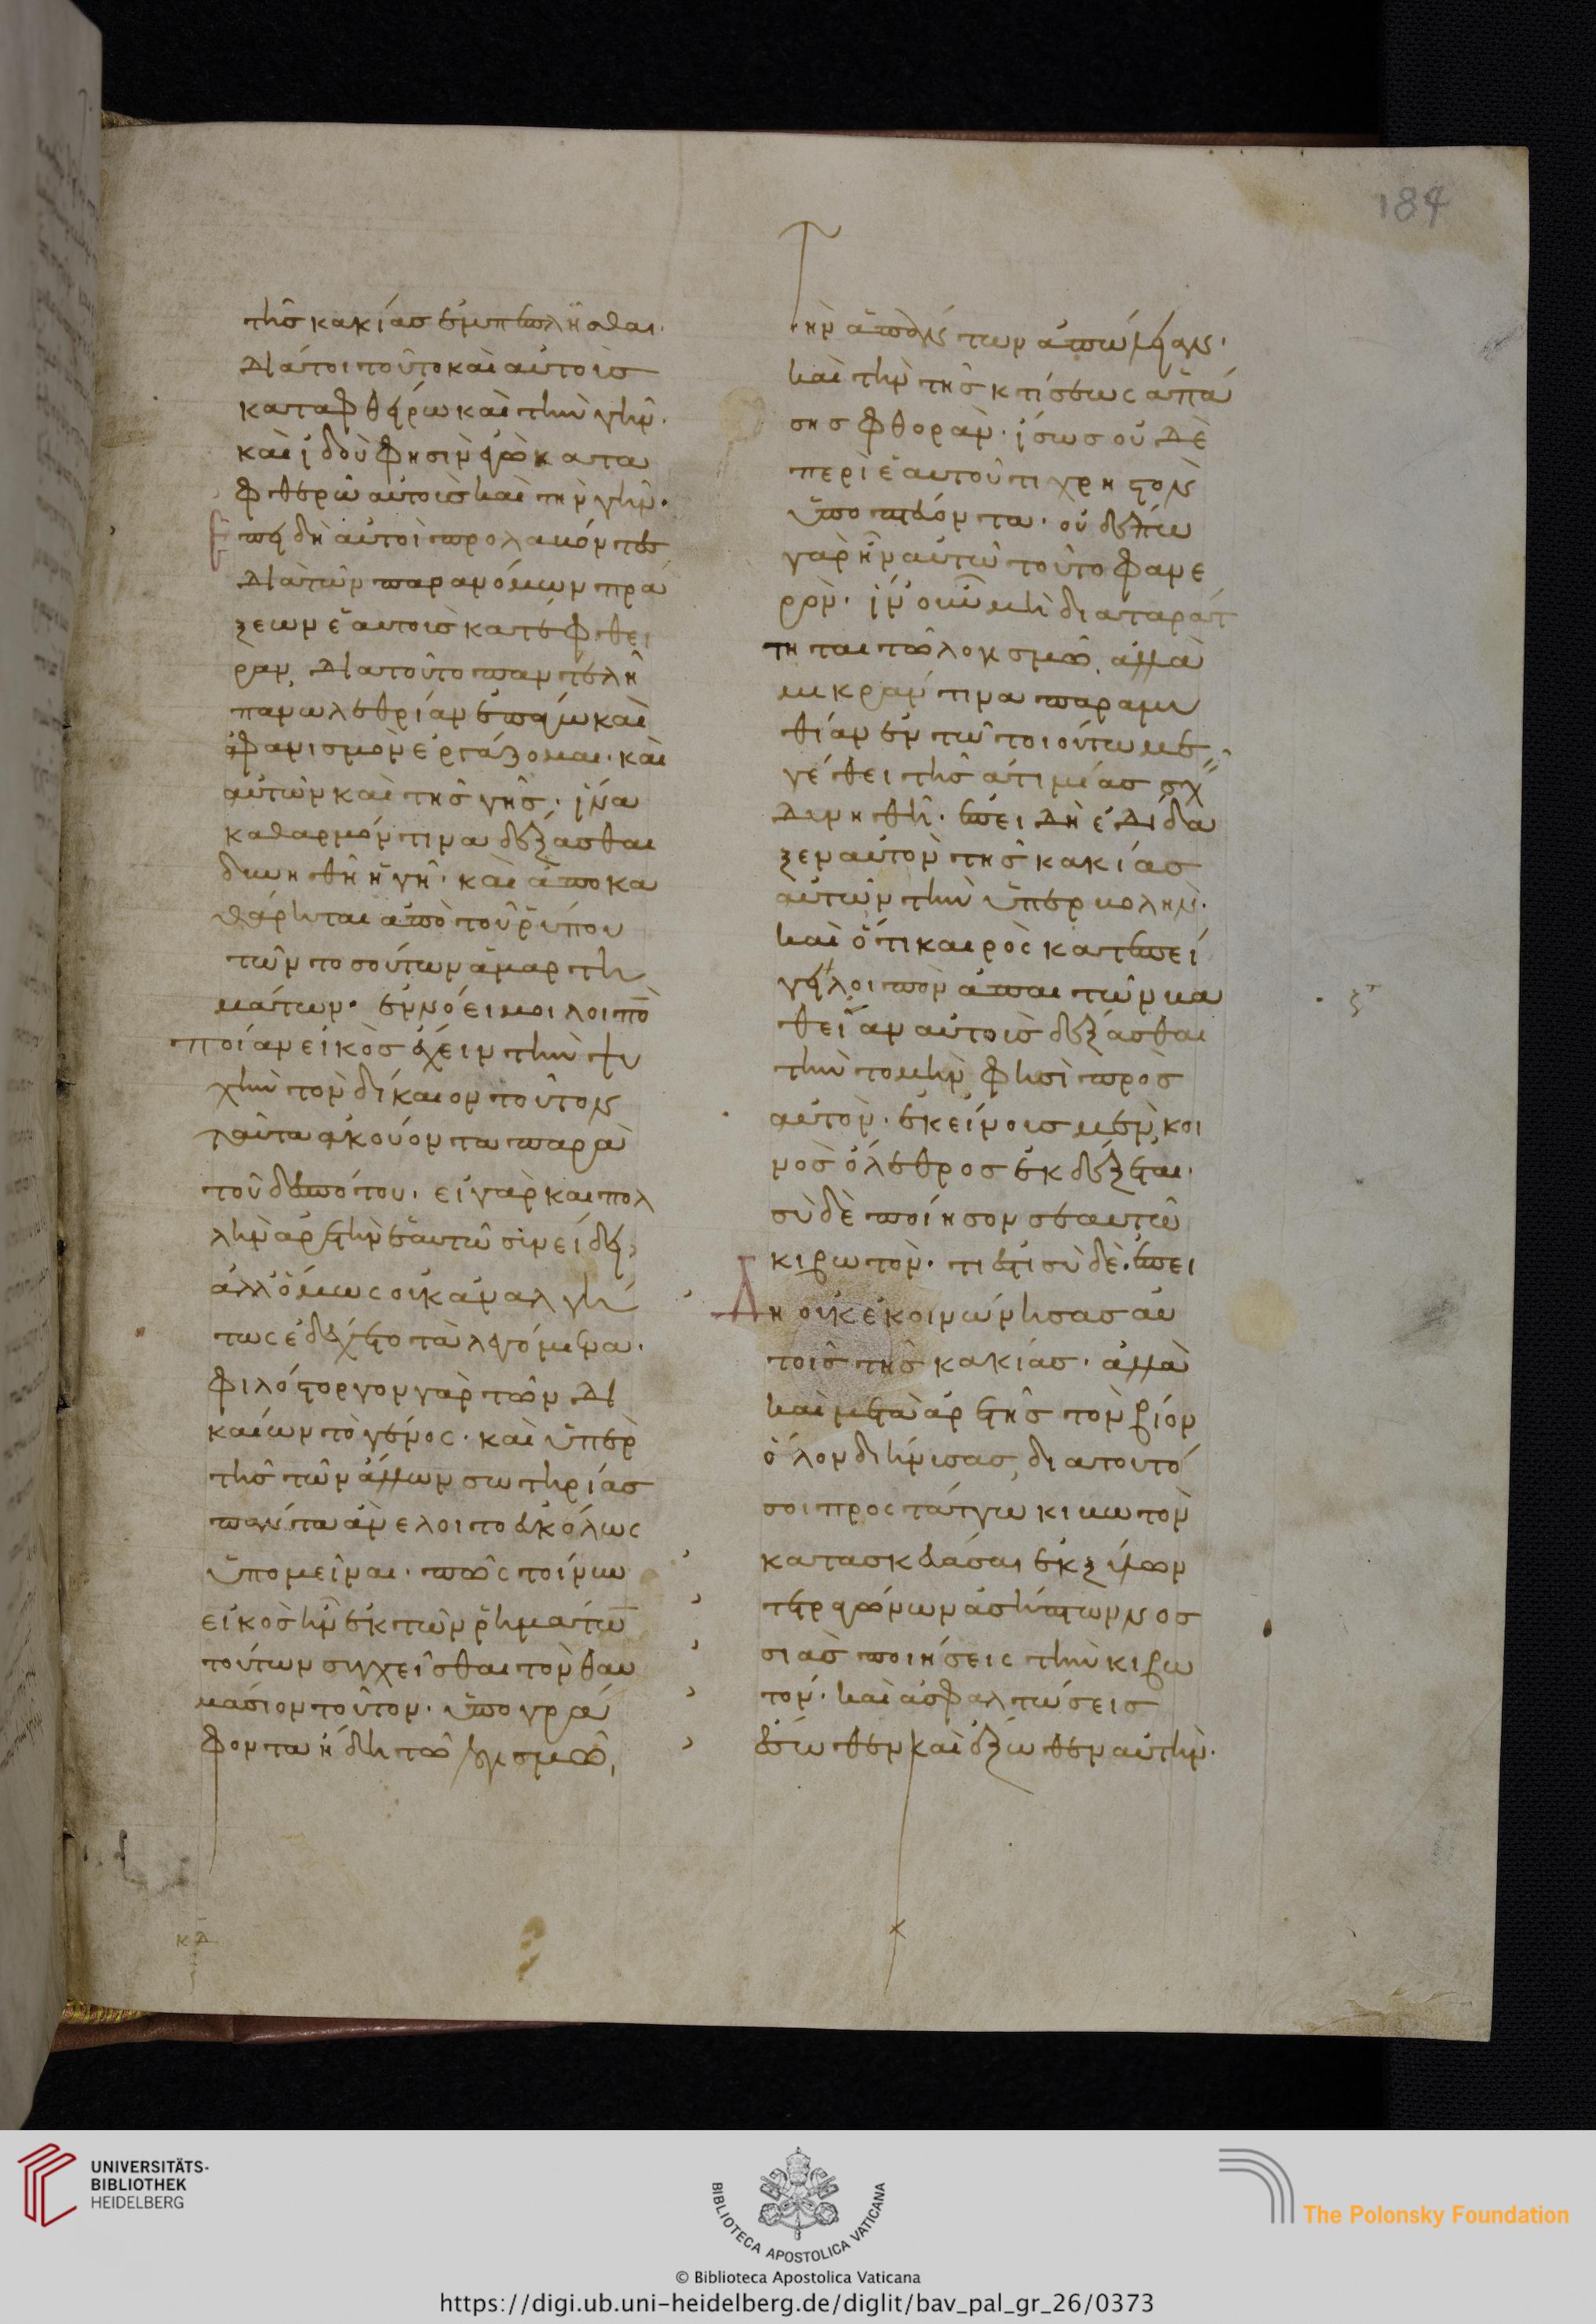 184
τῆς κακίας ἐμπεπλῆσθαι·
διά τοι τοῦτο καὶ αὐτοὺς
καταφθείρω καὶ τὴν γῆν·
καὶ ἰδοὺ φησὶν ἐγὼ κατα
φθερῶ αὐτοὺς καὶ τὴν γῆν·
ἐπειδὴ αὐτοὶ προλαβόντες
διὰ τῶν παρανόμων πρά
ξεων ἑαυτοὺς κατέφθει
ραν, διὰ τοῦτο παντελῆ
πανωλεθρίαν ἐπάγω καὶ
ἀφανισμὸν ἐργάζομαι· καὶ
αὐτῶν καὶ τῆς γῆς· ἵνα
καθαρμόν τινα δέξασθαι
δυνηθῆ ἡ γῆ· καὶ ἀποκα
θάρηται ἀπὸ τοῦ ῥύπου
τῶν τοσούτων ἁμαρτη
μάτων· ἐννόει μοι λοιπὸ
ποίαν εἰκὸς ἔχειν τὴν ψυ
χὴν τὸν δίκαιον τοῦτον
ταῦτα ἀκούοντα παρὰ
τοῦ δεσπότου· εἰ γὰρ καὶ πολ
λὴν ἀρετὴν ἑαυτῶ συνείδει,
ἀλλ' ὅμως οὐκ ἀναλγή
τως ἐδέχετο τὰ λεγόμενα·
φιλόστοργον γὰρ τῶν δι
καίων τὸ γένος· καὶ ὑπὲρ
τῆς τῶν ἄλλων σωτηρίας
πάντα ἂν ἕλοιντο εὐκόλως
ὑπομεῖναι· πῶς τοίνυν
εἰκὸς ἦν ἐκ τῶν ῥημάτων
τούτων συγχεῖσθαι τὸν θαυ
μάσιον τοῦτον· ὑπογρά
φοντα ἤδη τῶ λογισμῶ,
τὴν ἁπάντων ἀπώλειαν·
καὶ τὴν τῆς κτίσεως ἁπά
σης φθοράν· ἴσως οὐδὲ
περὶ ἑαυτοῦ τι χρηστὸν
ὑποπτεύοντα· οὐδέπω
γὰρ ἦν αὐτῶ τοῦτο φανε
ρόν· ἵν' οὖν μὴ διαταράτ
τηται τῶ λογισμῶ, ἀλλὰ
μικράν τινα παραμυ
θίαν ἐν τῶ τοιούτω με
γέθει τῆς ἀτιμίας σχεῖν
δυνηθῆ· ἐπειδὴ ἐδίδα
ξεν αὐτὸν τῆς κακίας
αὐτῶν τὴν ὑπερβολήν·
καὶ ὅτι καιρὸς κατεπεί
γει λοιπὸν ἅπαντων βα
θεῖαν αὐτοὺς δέξασθαι
τὴν τομὴν φησὶ πρὸς
αὐτόν· ἐκείνους μὲν κοι
νὸς ὄλεθρος ἐκδέξεται·
σὺ δὲ ποίησον σεαυτῶ
κιβωτόν· τί ἐστι σὺ δέ· ἐπει
Δὴ οὐκ ἐκοινώνησας αὐ
τοῖς τῆς κακίας· ἀλλὰ
καὶ μετὰ ἀρετῆς τὸν βίον
ὅλον διήνυσας, διὰ τοῦτό
σοι προστάττω κιβωτὸν
κατασκευάσαι ἐκ ξύλων
τετραγώνων ἀσήπτων νοσ
σιὰς ποιήσεις τὴν κιβω
τόν· καὶ ἀσφαλτώσεις
ἔσωθεν καὶ ἔξωθεν αὐτήν·
κδ
UNIVERSITÄTS-
BIBLIOTHEK
HEIDELBERG
BIBLIOTECA APOSTOLICA VATICANA
The Polonsky Foundation
© Biblioteca Apostolica Vaticana
https://digi.ub.uni-heidelberg.de/diglit/bav_pal_gr_26/0373